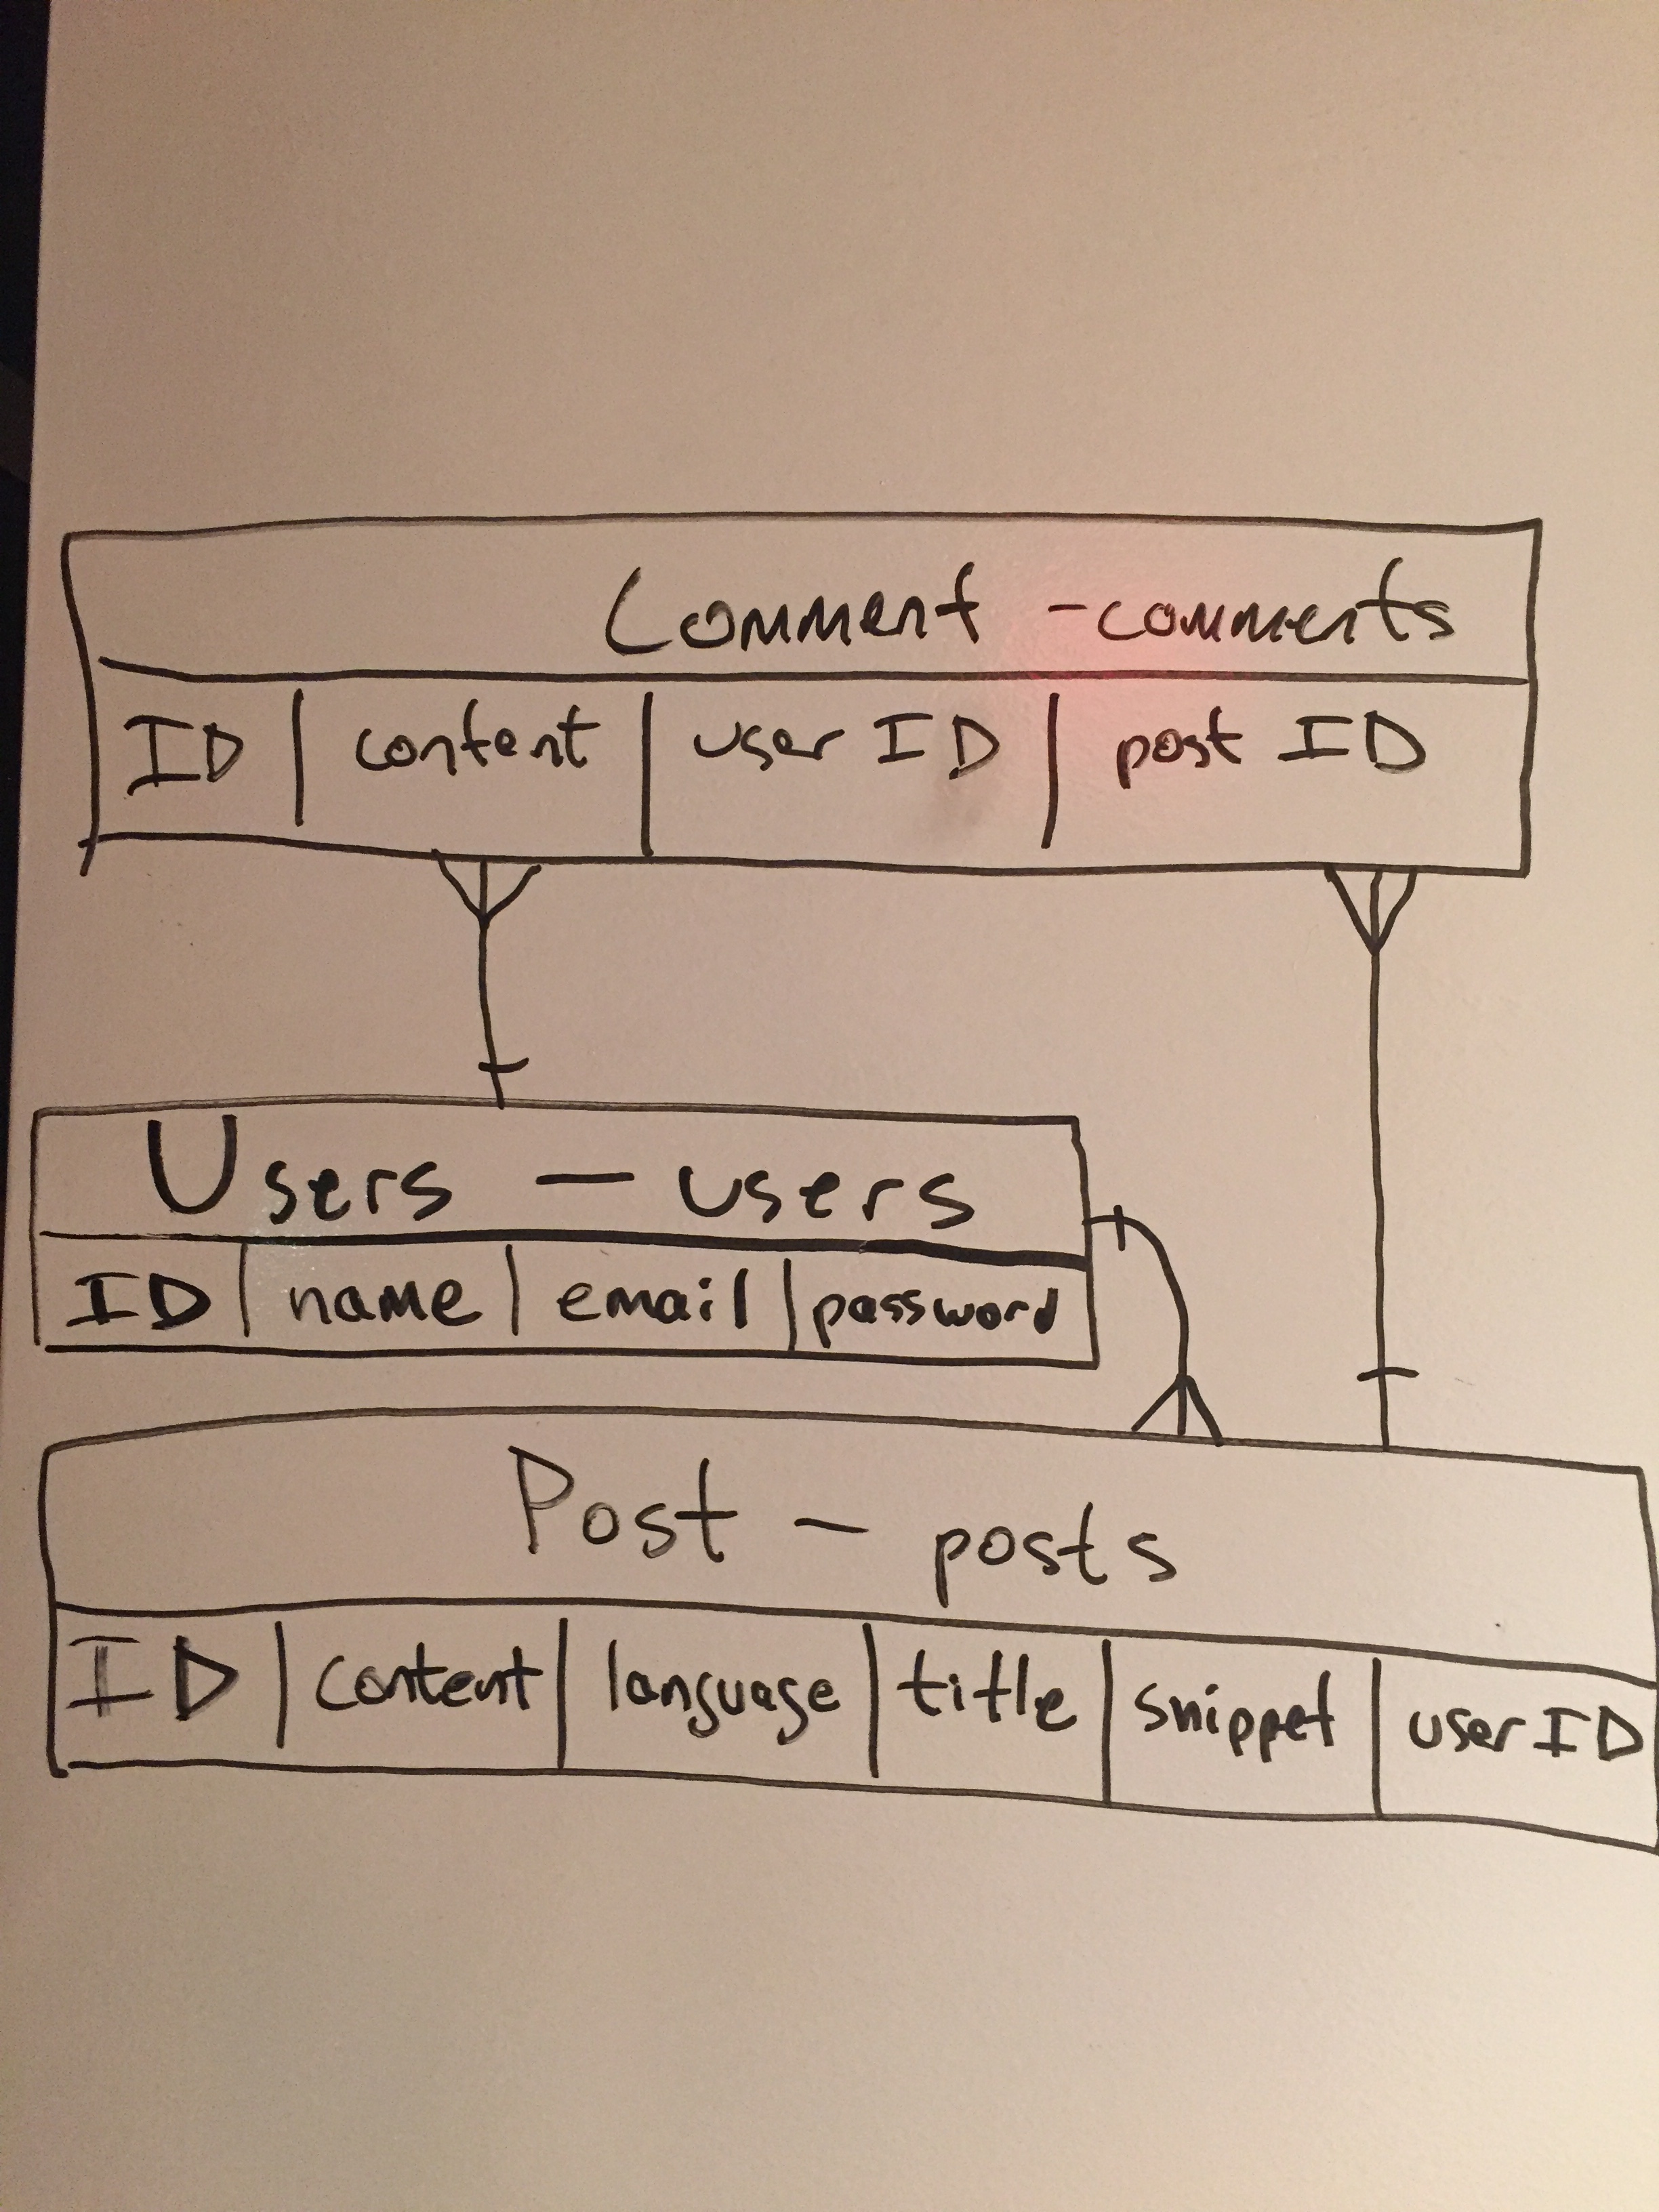 Comment - comments
ID | content | user ID | post ID
Users - users
ID | name | email | password
Post - posts
ID | content | language | title | snippet | user ID